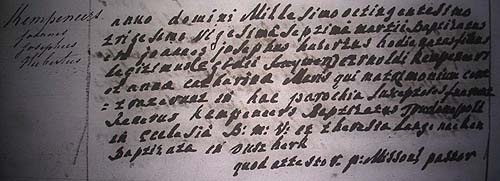 Kempeneers
Joannes
Josephus
Hubertus
anno domini Millesimo octingentesimo
trigesimo Septima martii Baptizatus
est joannes josephus hubertus hodie natus filius
legitimus Kempeneers
et anna catharina Maris qui matrimonium cont
=traxerunt in hac parochia Susceptores fuerunt
Kempeneers Baptizatus
in ecclesia B: m: V: et theresia Langenaeken
Baptizata in
quod attestor p: Missou? pastor